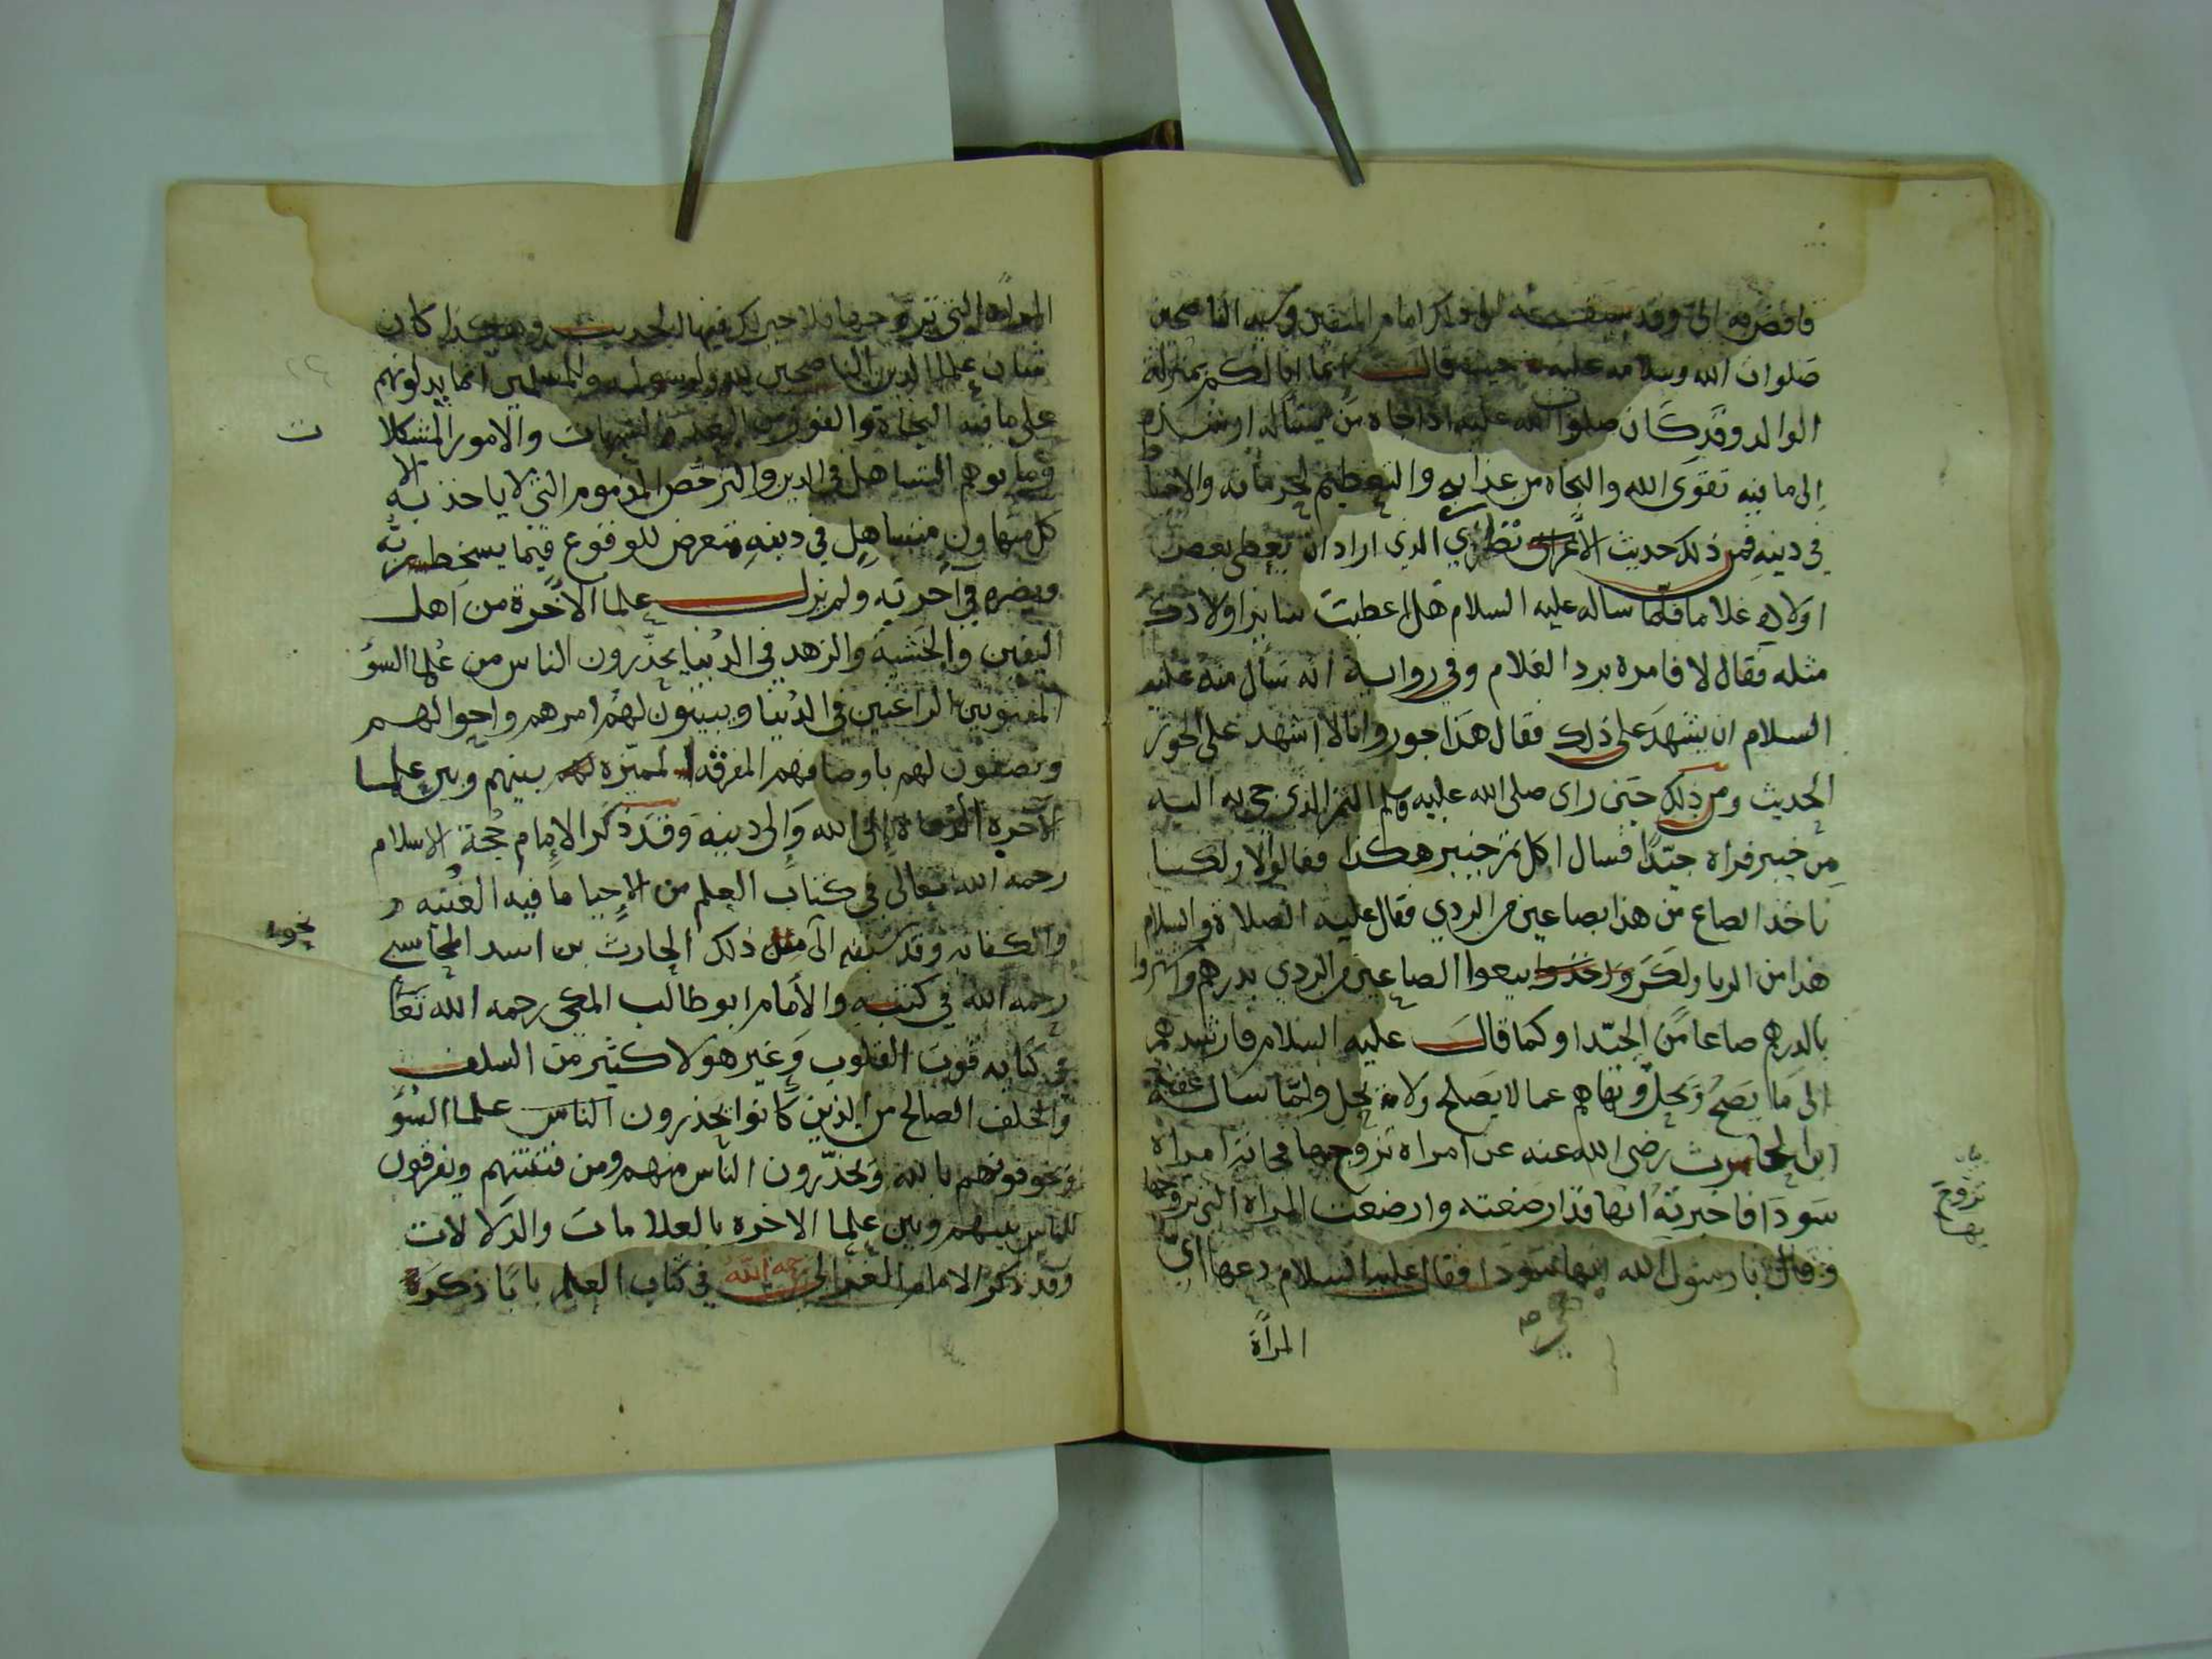 صلوات الله وسلامه عليه حيث قال انما انا لكم بمنزلة
الوالد وقد كان صلوات الله عليه اذا جاه من يساله ارشده
الى ما فيه تقوى الله والنجاه من عذابه والتعظيم لحرماته والاحتيا
في دينه فمن ذلك حديث الذي اراد ان يعطى بعض
اولاده غلاما فلما ساله عليه السلام هل اعطيت ساير اولادك
مثله فقال لا فامره برد الغلام وفي رواية انه سال منه عليه
السلام ان يشهد على ذلك فقال هذا جور وانا لا اشهد على الجور
الحديث ومن ذلك حتى راى صلى الله عليه وسلم التمر الذي جي به اليه
من خيبر فراه جيدا فسال اكل تمر خيبر هكذا فقالوا لا ولكننا
ناخذ الصاع من هذا بصاعين من الردي فقال عليه الصلاة والسلام
هذا من الربا ولكن بيعوا الصاعين من الردي بدرهم واشتروا
بالدرهم صاعا من الجيد او كما قال عليه السلام فارشدهم
الى ما يصح ويحل ونهاهم عما لا يصلح ولا يحل ولما ساله عقبة
ابن الحارث رضي الله عنه عن امراه تزوجها فجاته امراه
سودا فاخبرته انها قد ارضعته وارضعت المراه التي تزوجها
وقال يا رسول الله انها سودا فقال عليه السلام دعها اي
المرأة
تزوج
بها
المرأة التي تزوجها فلا خير لك فيها الحديث وهكذا كان
شان علما الدين الناصحين لله ولرسوله وللمسلمين انما يدلونهم
على ما فيه النجاة والفوز والشبهات والامور المشكلا
ت
وما يوهم التساهل في الدين والترخص المذموم التي لا ياخذ به الا
كل متهاون متساهل في دينه متعرض للوقوع فيما يسخط ربه
ويضره في آخرته ولم يزل علما الآخرة من اهل
اليقين والخشية والزهد في الدنيا يحذرون الناس من علما السؤ
المفتونين الراغبين في الدنيا ويبينون لهم امرهم واحوالهم
ويصفون لهم باوصافهم المفرقه المميزه بينهم وبين علما
الآخره الدعاة الى الله والى دينه وقد ذكر الامام حجة الاسلام
رحمه الله تعالى في كتاب العلم من الاحيا ما فيه الغنيه و
والكفايه وقد سبقه الى مثل ذلك الحارث بن اسد المحاسبي
نحو
رحمه الله في كتبه والأمام ابو طالب المكي رحمه الله تعا
في كتابه قوت القلوب وغير هولا كثير من السلف
والخلف الصالح من الذين كانوا يحذرون الناس علما السؤ
ويخوفونهم بالله ويحذرون الناس منهم ومن فتنتهم ويفرقون
للناس بينهم وبين علما الاخره بالعلامات والدلالات
وقد ذكر الامام الغزالي رحمه الله في كتاب العلم بابا ذكره